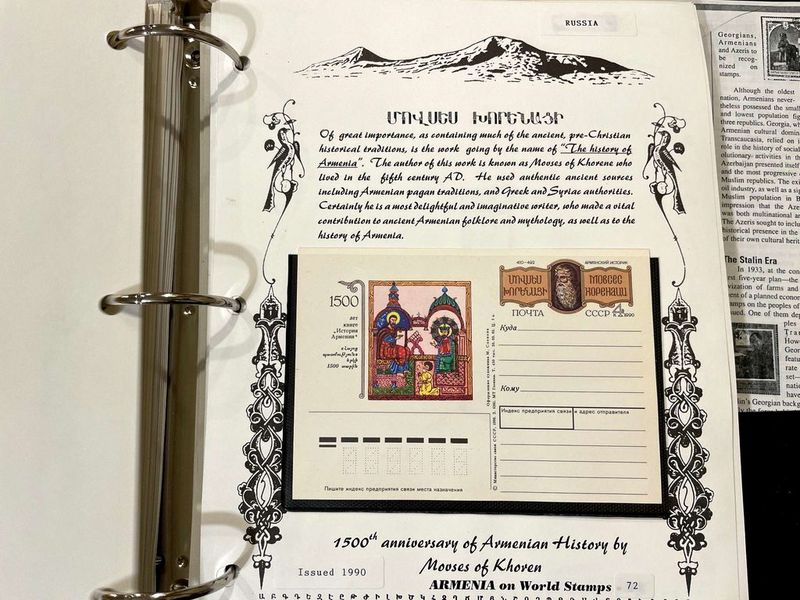 RUSSIA
ՄՈՎՍԵՍ ԽՈՐԵՆԱՑԻ
Of great importance, as containing much of the ancient, pre-Christian
historical traditions, is the work going by the name of "The history of
Armenia". The author of this work is known as Movses of Khorene who
lived in the fifth century AD. He used authentic ancient sources
including Armenian pagan traditions, and Greek and Syriac authorities.
Certainly he is a most delightful and imaginative writer, who made a vital
contribution to ancient Armenian folklore and mythology, as well as to the
history of Armenia.
1500
лет
книге
„История
Армении"
1500
АРМЯНСКИЙ ИСТОРИК
ՄՈՎՍԵՍ
ԽՈՐԵՆԱՑԻ
МОВСЕС
ХОРЕНАЦИ
ПОЧТА
СССР 4к 1990
Куда
Кому
Индекс предприятия связи и адрес отправителя
Пишите индекс предприятия связи места назначения
1500th anniversary of Armenian History by
Movses of Khoren
Issued 1990
ARMENIA on World Stamps
72
Georgians,
Armenians
and Azeris to
be recog-
nized on
stamps.
Although the oldest
nation, Armenians never
theless possessed the small
and lowest population fig
three republics. Georgia, wh
Armenian cultural domin
Transcaucasia, relied on i
role in the history of social
olutionary activities in th
Azerbaijan presented itself
and the most progressive
Muslim republics. The exi
oil industry, as well as a sig
Muslim population in B
impression that the Aze
was both multinational an
The Azeris sought to inclu
historical presence in the
of their own cultural herit
The Stalin Era
In 1933, at the con
first five-year plan—the
vization of farms and
ent of a planned econo
amps on the peoples of
ued. One of them dep
ples
Tra
How
Geor
featu
rate
set—
natio
have
lin's Georgian backg